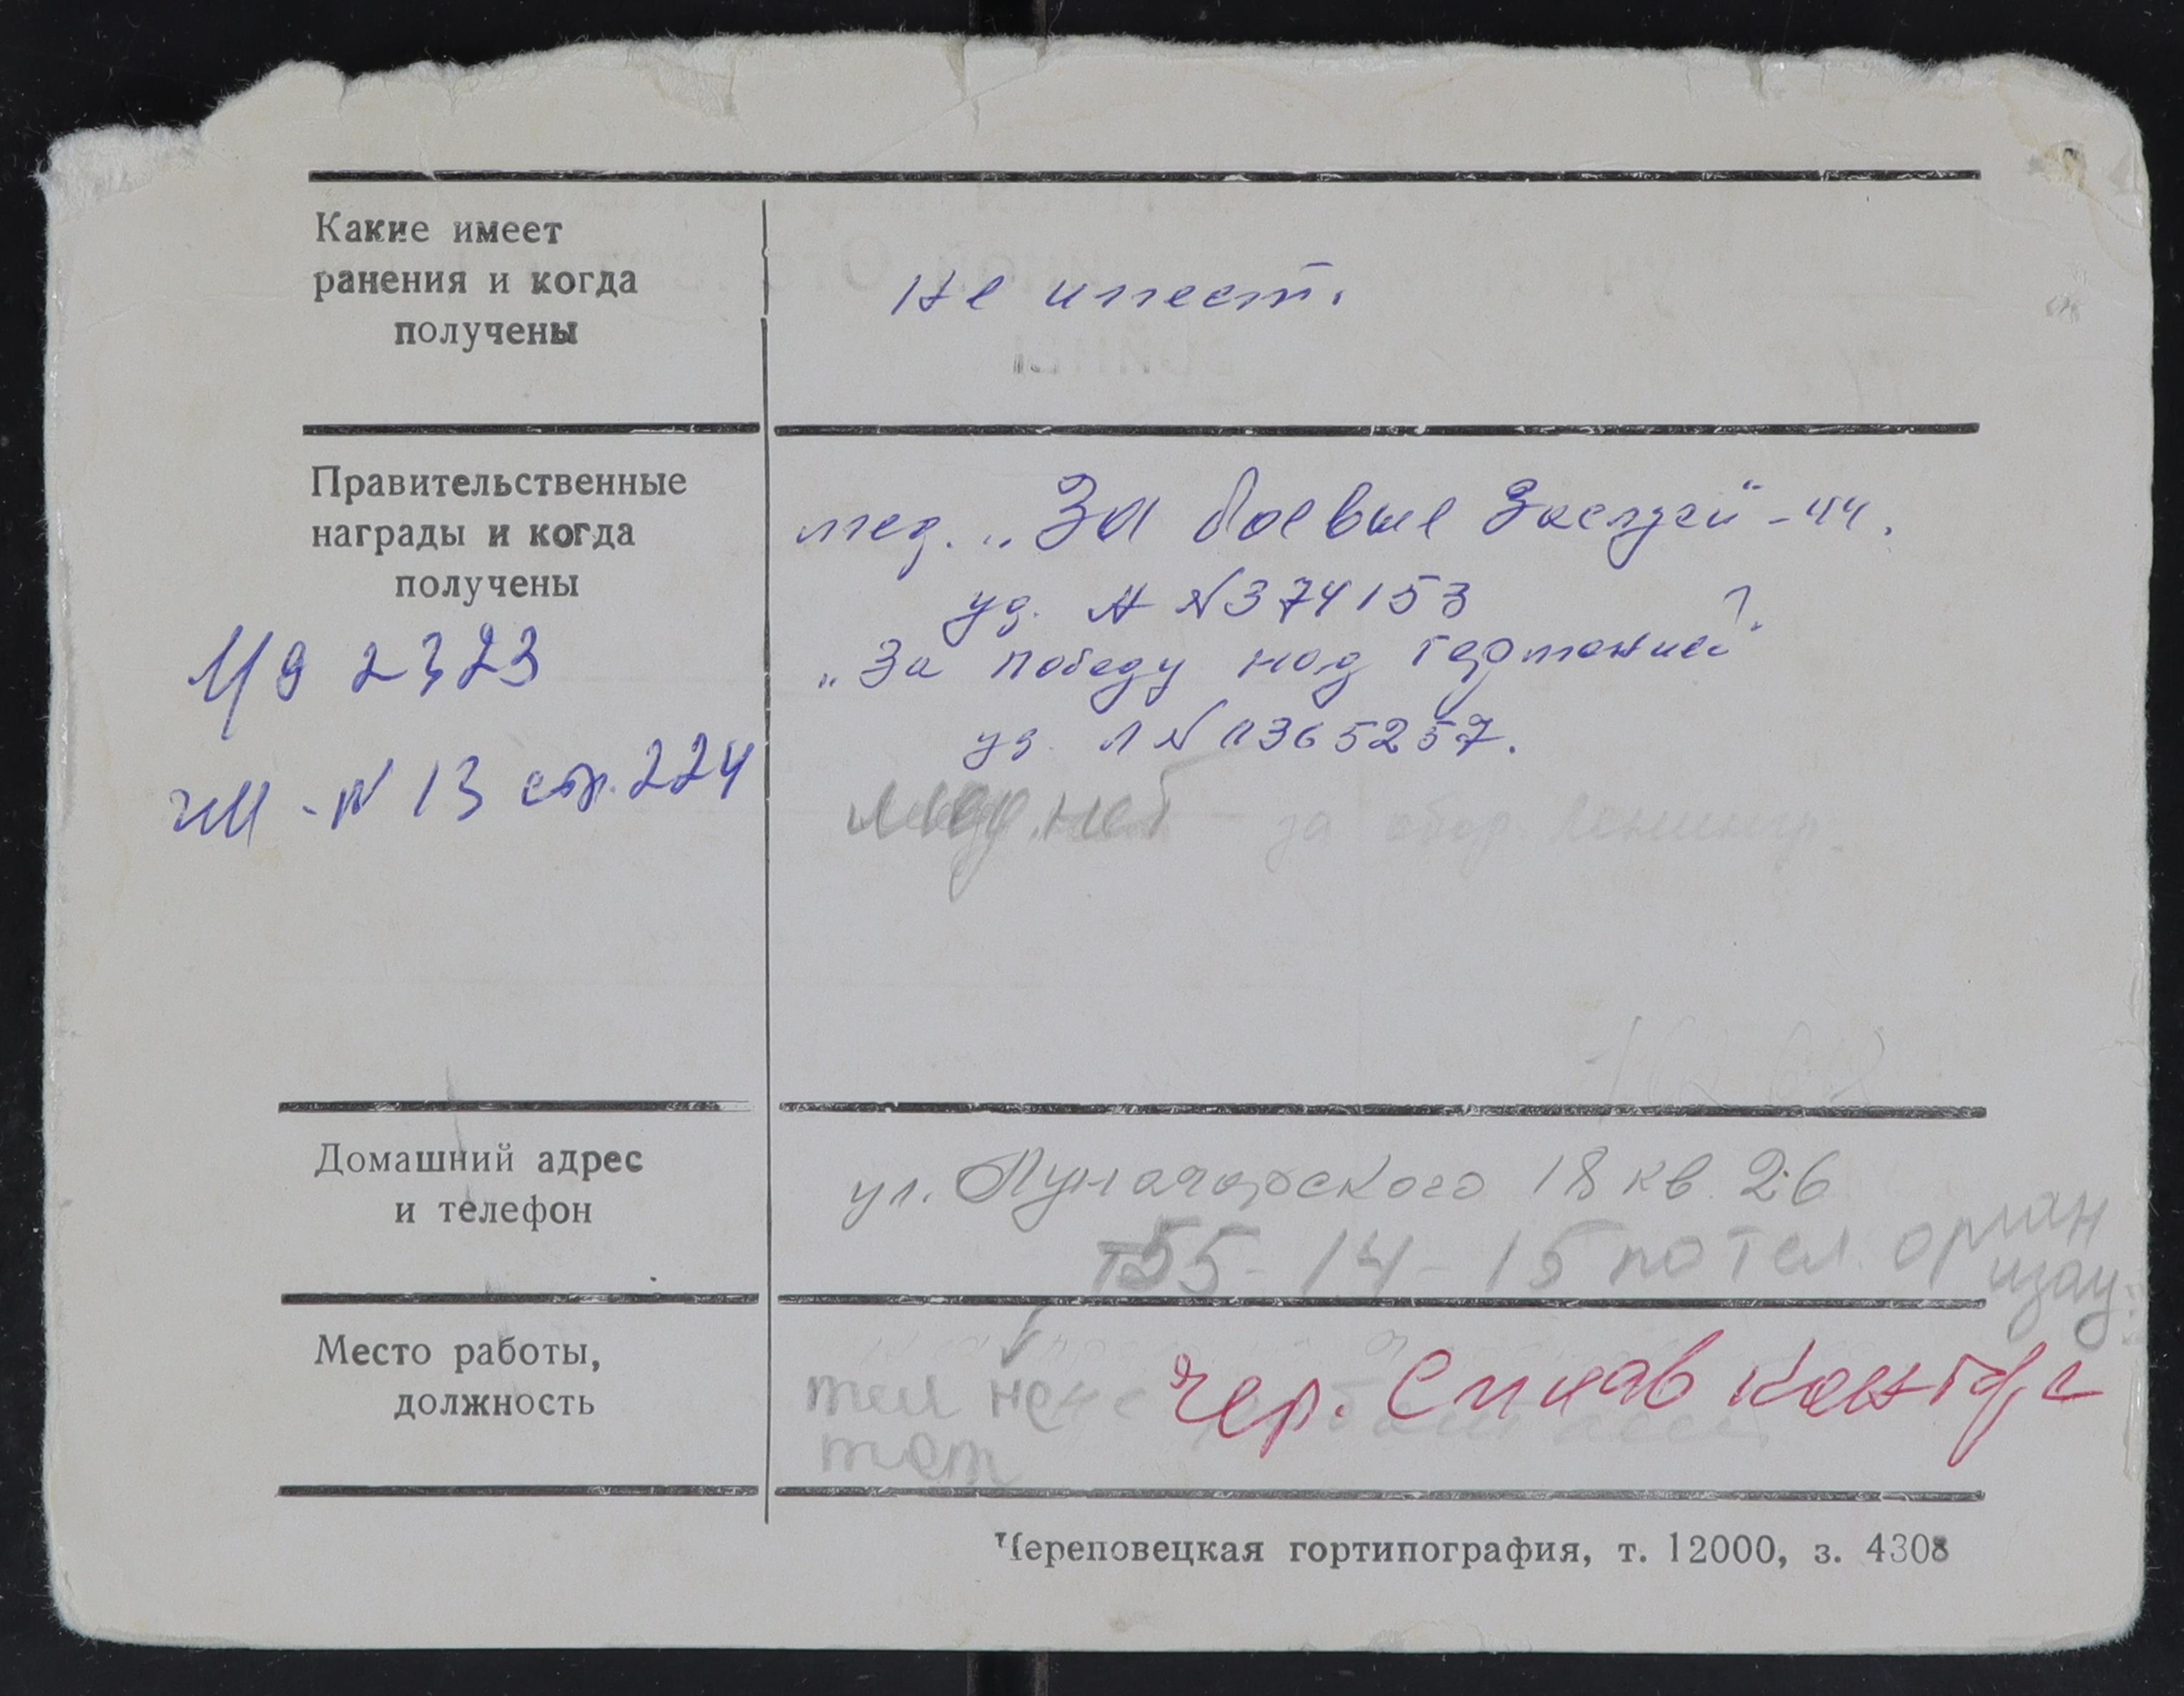 Какие имеет
ранения и когда
получены
не имеет.
Правительственные
награды и когда
получены
мед. „За боевые заслуги" - 44.
уд. А №374153
„За победу над Германией"
уд. Л №0365257.
мед. нет - за обор. Ленингр.
2323
№ 13 стр. 224
Домашний адрес
и телефон
ул. Луначарского 18 кв. 26
т55-14-15 по тел.
Место работы,
должность
Чер. Сплав Контора
Череповецкая гортипография, т. 12000, з. 4308